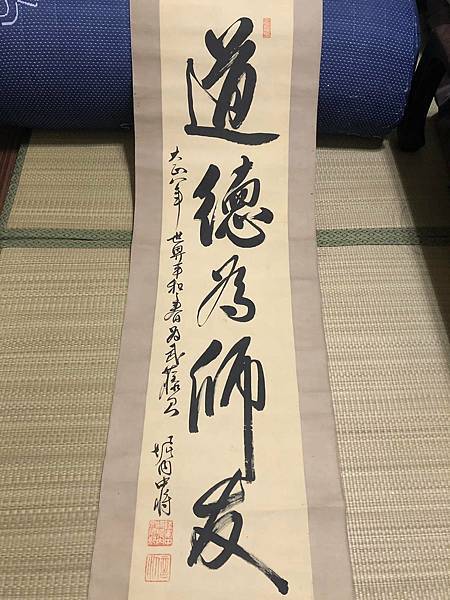 道德為師友
大正八年 世界平和春為武藤君
堀内中将